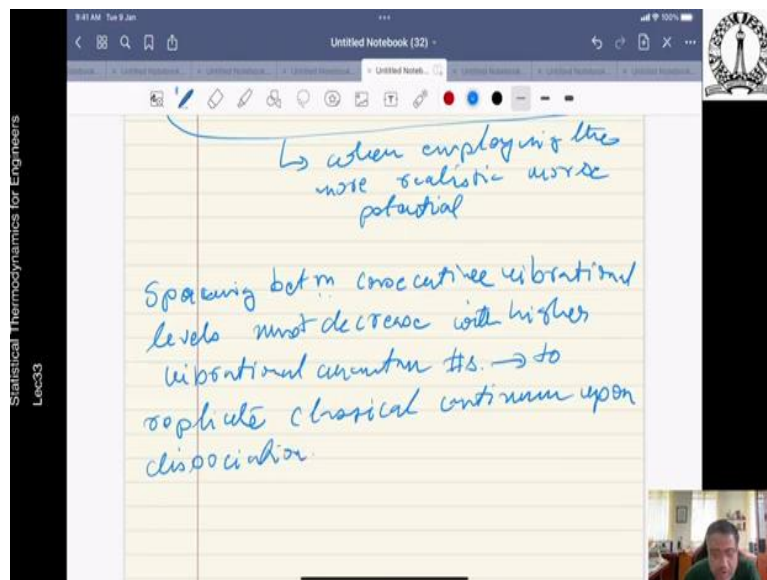 9:41 AM Tue 9 Jan
100%
Untitled Notebook (32)
Untitled Noteb...
Statistical Thermodynamics for Engineers
Lec33
↳ when employing the
more realistic morse
potential
Spacing betn consecutive vibrational
levels must decrease with higher
vibrational quantum #s. → to
replicate classical continuum upon
dissociation.